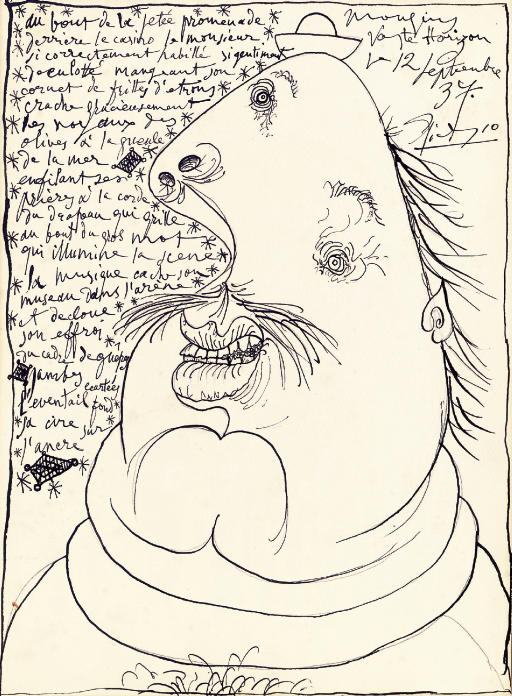 au bout de la jetée promenade
derrière le casino le monsieur
si correctement habillé si gentiment
déculotté mangeant son
cornet de frittes d'étrons
crache gracieusement
les noyaux des
olives à la gueule
de la mer
enfilant ses
prières à la corde
du drapeau qui grille
au bout du gros mot
qui illumine la scène
la musique cache son
museau dans l'arène
et décloue
son effroi
du cadre de guêpes
jambes écartées
l'éventail fond
sa cire sur
l'ancre
Mougins
Vaste Horizon
12 septembre
37.
Picasso